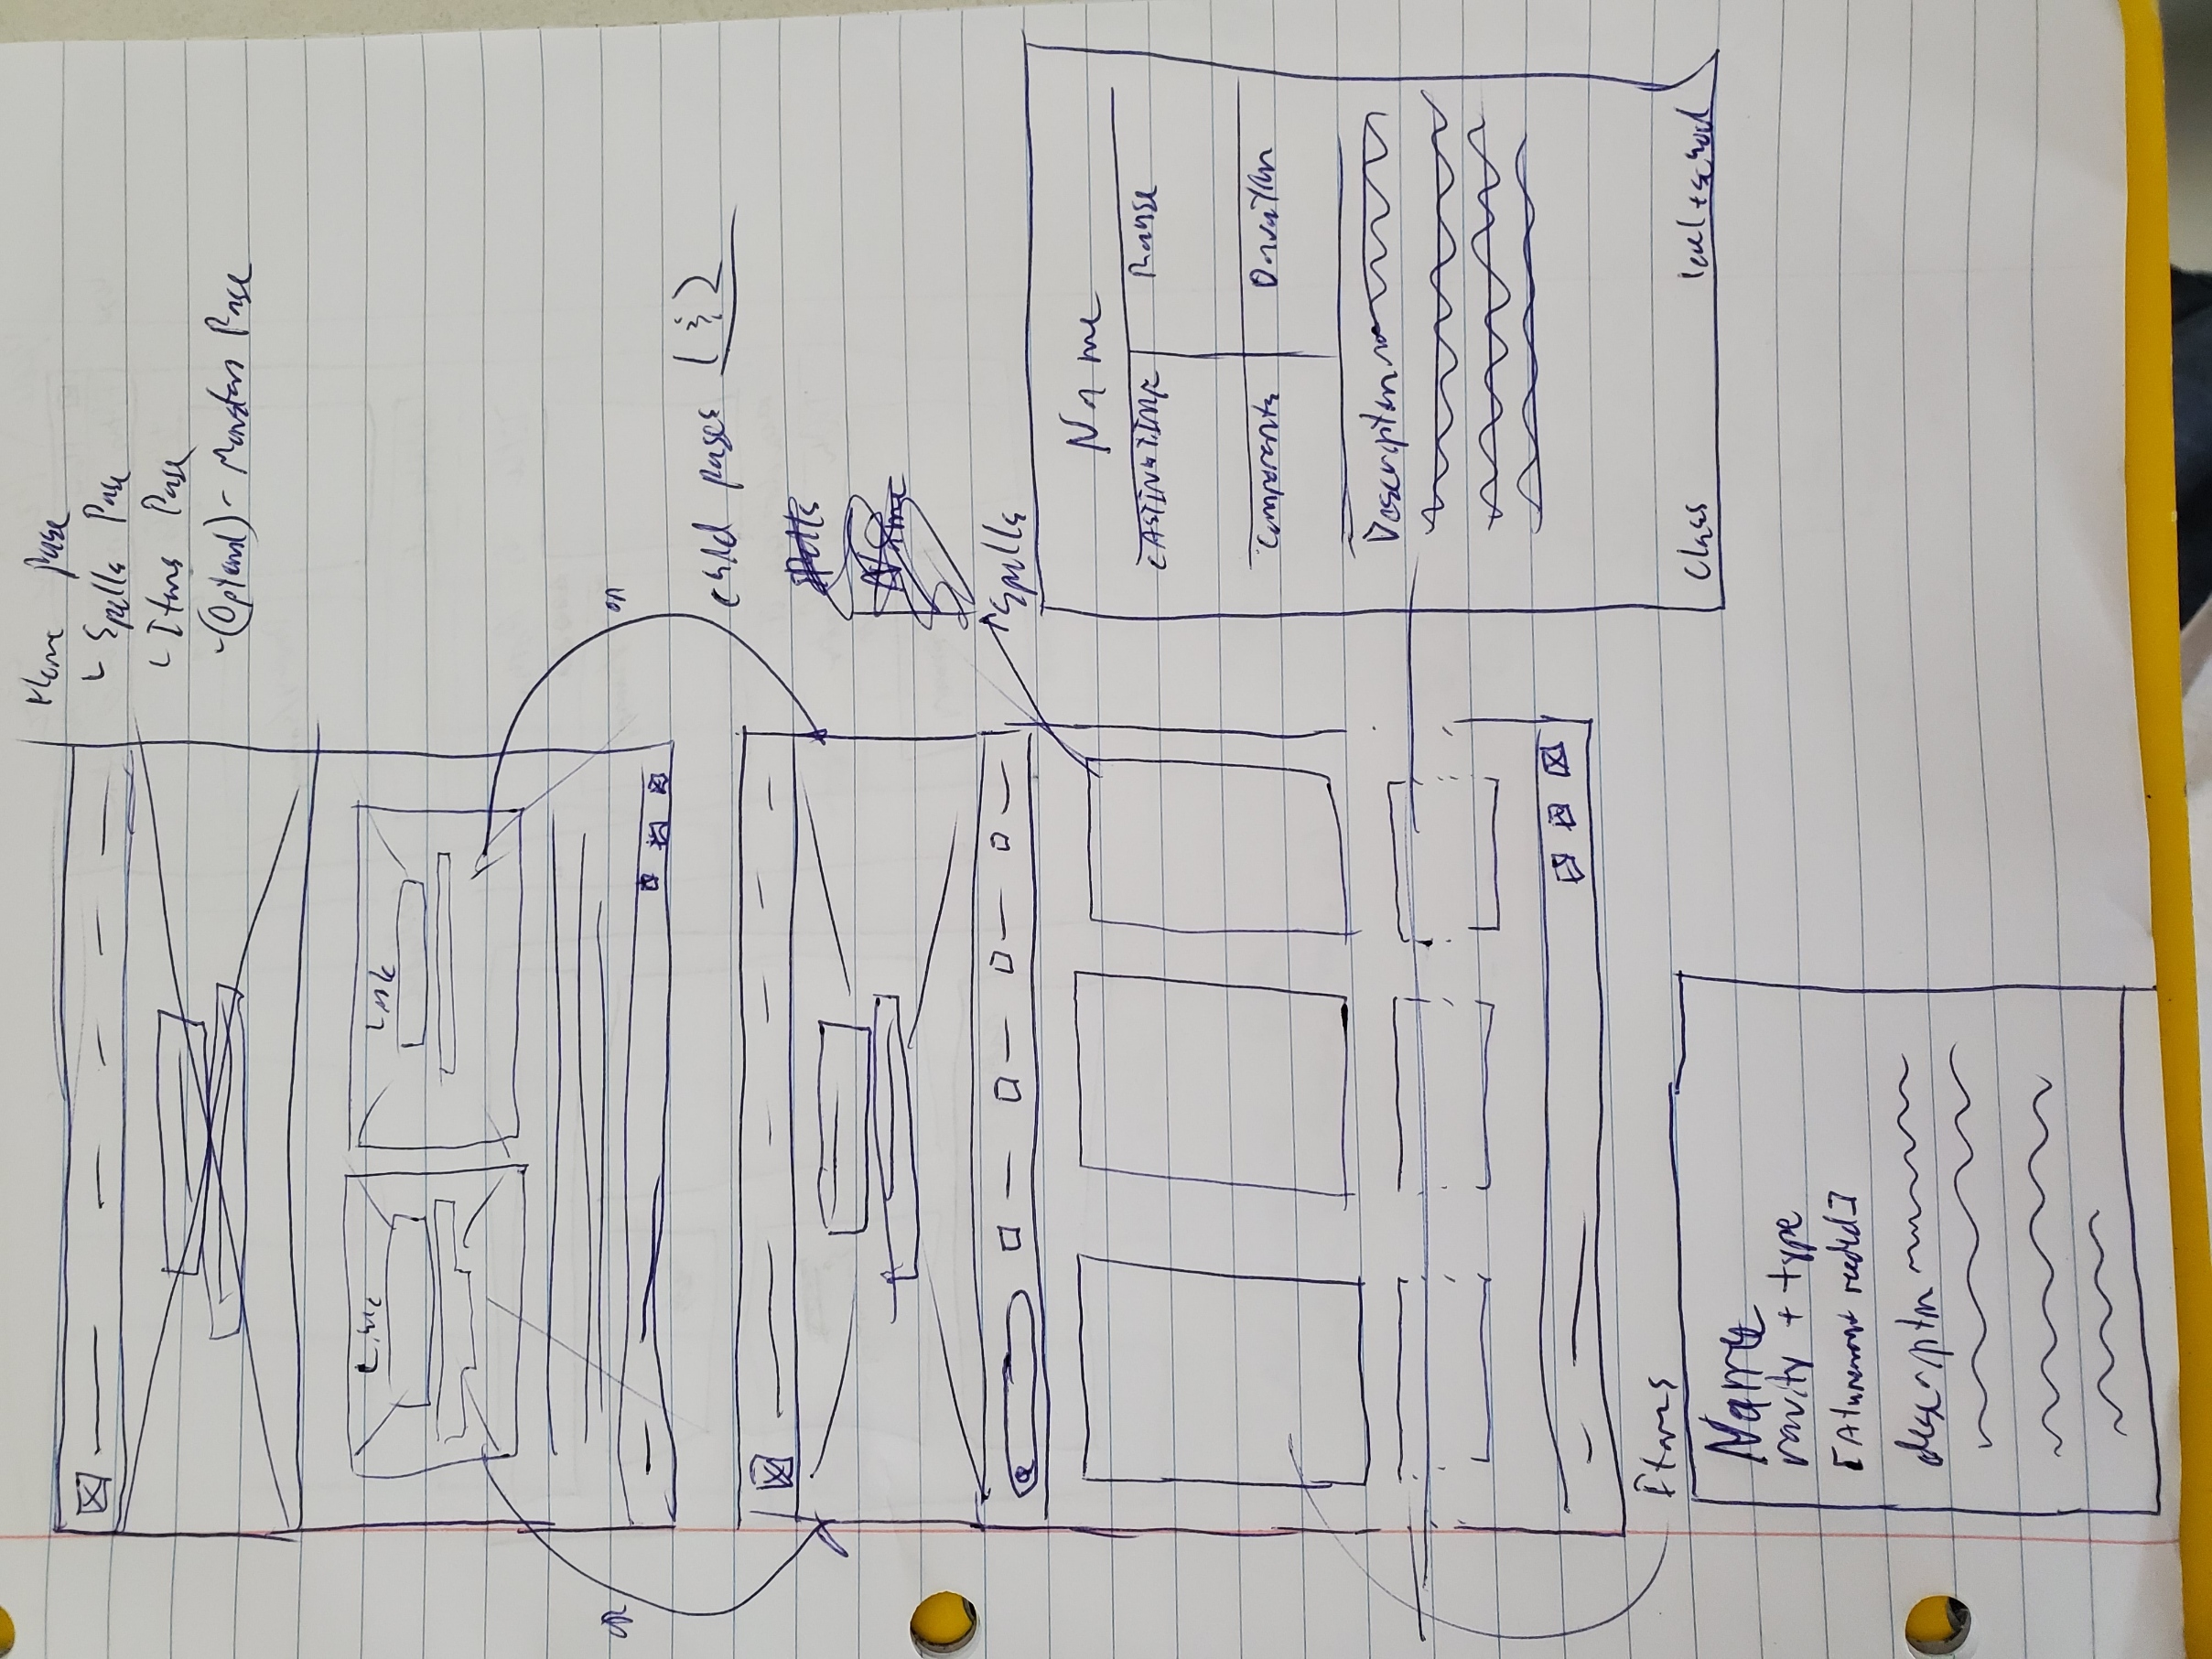 Home Page
Spells Page
Items Page
(Optional) - Monsters Page
Link
Link
OR
OR
Child pages 1 & 2
Spells
Name
Spells
Name
CASTING TIME
Range
Components
Duration
Description
Class
level + school
Items
Name
rarity + type
[Atunement needed]
description